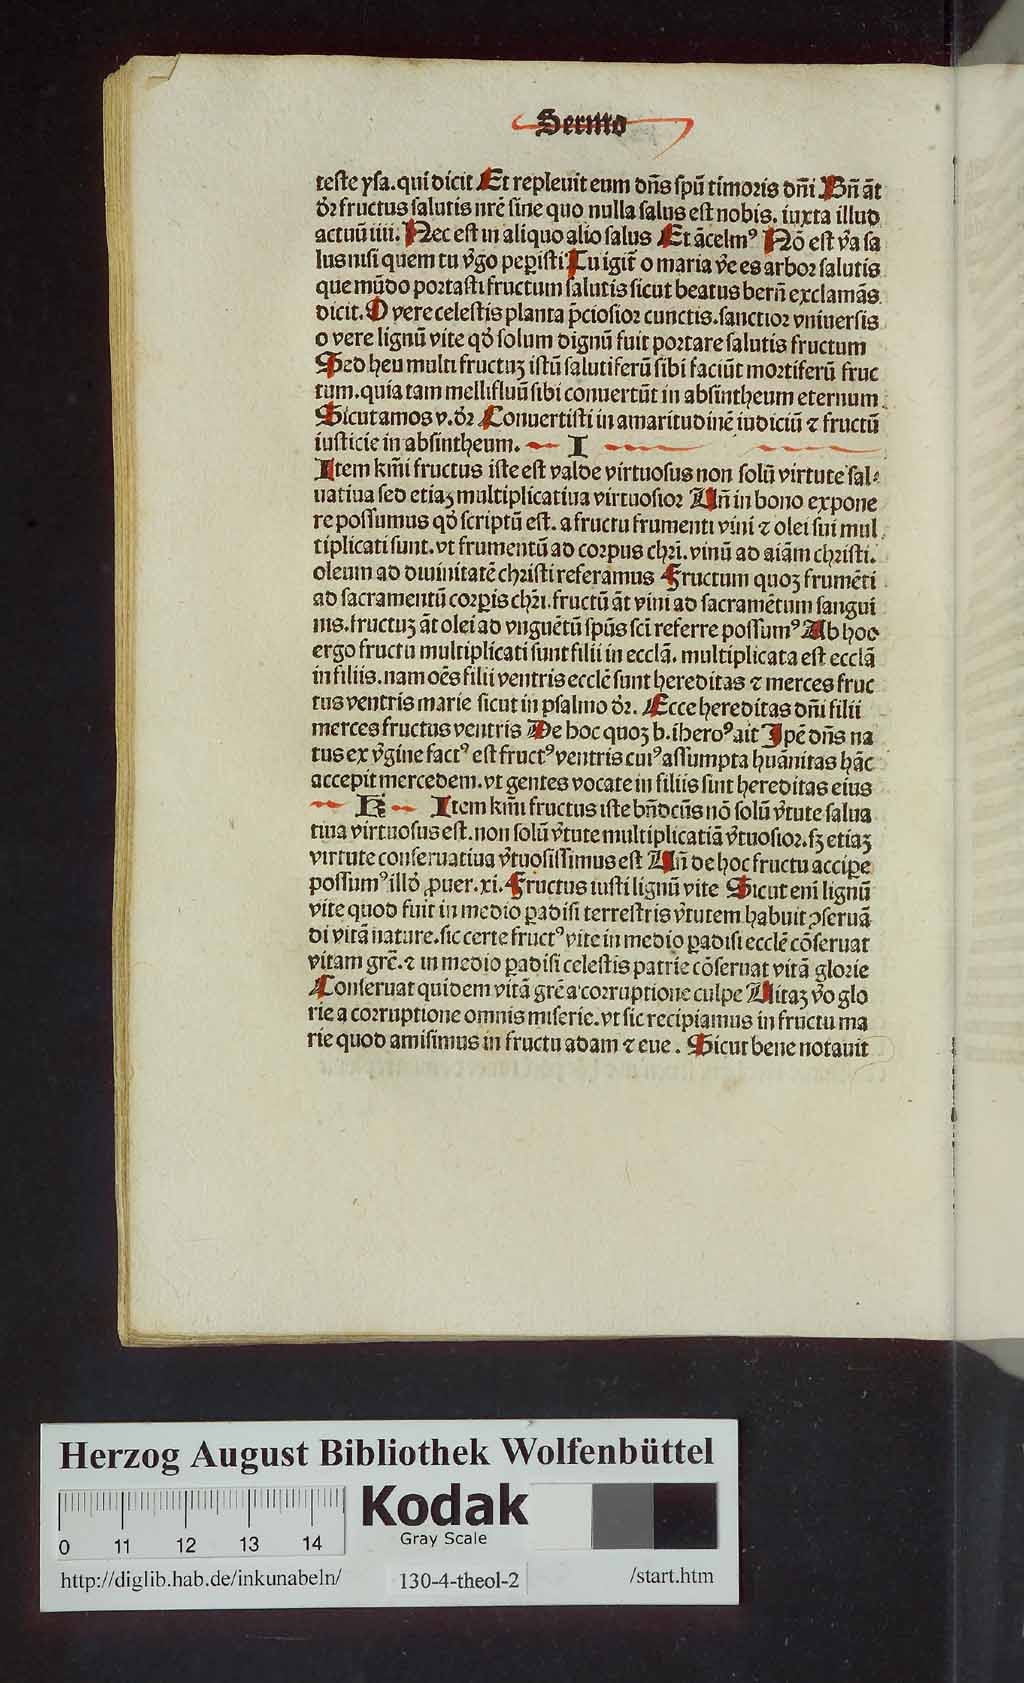 Sermo
teste ysa. qui dicit Et repleuit eum dn̄s spū timoris dn̄i Bn̄ āt
dr̄ fructus salutis nrē sine quo nulla salus est nobis. iuxta illud
actuū iiii. Nec est in aliquo alio salus Et ācelmꝰ Nō est v̄a sa
lus nisi quem tu v̄go peperisti Tu igit̄ o maria v̄e es arbor salutis
que mūdo portasti fructum salutis sicut beatus bern̄ exclamās
dicit. O vere celestis planta p̄ciosior cunctis. sanctior vniuersis
o vere lignū vite qd̓ solum dignū fuit portare salutis fructum
Sed heu multi fructuꝫ istū salutiferū sibi faciūt mortiferū fruc
tum. quia tam mellifluū sibi conuertūt in absintheum eternum
Sicut amos v. dr̄ Conuertisti in amaritudinē iudiciū ⁊ fructū
iusticie in absintheum. I
Item km̄i fructus iste est valde virtuosus non solū virtute sal⸗
uatiua sed etiaꝫ multiplicatiua virtuosior Vn̄ in bono expone
re possumus qd̓ scriptū est. a fructu frumenti vini ⁊ olei sui mul
tiplicati sunt. vt frumentū ad corpus chr̄i. vinū ad aiām christi.
oleum ad diuinitatē christi referamus Fructum quoꝫ frumēti
ad sacramentū corꝑis chr̄i. fructū āt vini ad sacramētum sangui
nis. fructuꝫ āt olei ad vnguētū spūs scī referre possumꝰ Ab hoc
ergo fructu multiplicati sunt filii in ecclā. multiplicata est ecclā
in filiis. nam oēs filii ventris ecclē sunt hereditas ⁊ merces fruc
tus ventris marie sicut in psalmo dr̄. Ecce hereditas dn̄i filii
merces fructus ventris De hoc quoꝫ b. iheroꝰ ait Ipē dn̄s na
tus ex v̄gine factꝰ est fructꝰ ventris cuiꝰ assumpta huānitas hāc
accepit mercedem. vt gentes vocate in filiis sint hereditas eius
K Item km̄i fructus iste bn̄dcūs nō solū v̄tute salua
tiua virtuosus est. non solū v̄tute multiplicatiā v̄tuosior. sꝫ etiaꝫ
virtute conseruatiua v̄tuosissimus est Vn̄ de hoc fructu acciꝑe
possumꝰ illd̓ ꝓuer. xi. Fructus iusti lignū vite Sicut enī lignū
vite quod fuit in medio ꝑadisi terrestris v̄tutem habuit ꝯseruā
di vitā nature. sic certe fructꝰ vite in medio ꝑadisi ecclē cōseruat
vitam grē. ⁊ in medio ꝑadisi celestis patrie cōseruat vitā glorie
Conseruat quidem vitā grē a corruptione culpe Vitaꝫ v̄o glo
rie a corruptione omnis miserie. vt sic recipiamus in fructu ma
rie quod amisimus in fructu adam ⁊ eue. Sicut bene notauit
Herzog August Bibliothek Wolfenbüttel
Kodak
Gray Scale
0 11 12 13 14
http://diglib.hab.de/inkunabeln/ 130-4-theol-2 /start.htm